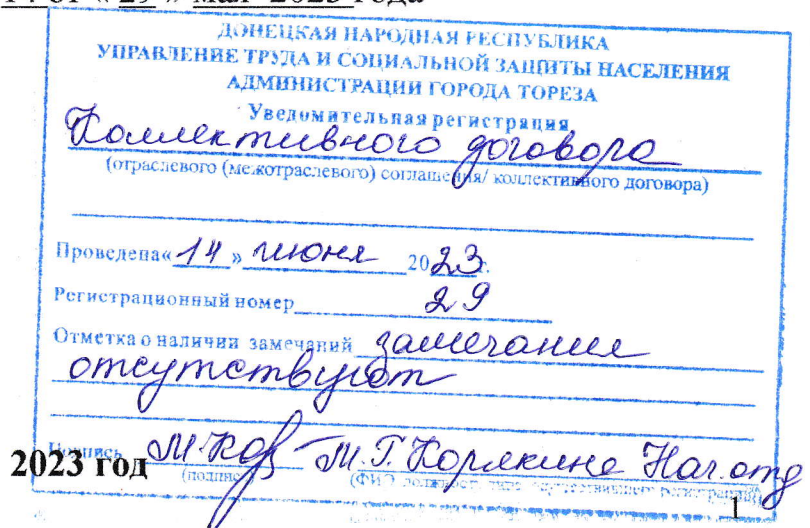 от « 29 » мая 2023 года
ДОНЕЦКАЯ НАРОДНАЯ РЕСПУБЛИКА
УПРАВЛЕНИЕ ТРУДА И СОЦИАЛЬНОЙ ЗАЩИТЫ НАСЕЛЕНИЯ
АДМИНИСТРАЦИИ ГОРОДА ТОРЕЗА
Уведомительная регистрация
Коллективного договора
(отраслевого (межотраслевого) соглашения/ коллективного договора)
Проведена« 14 » июня 2023г.
Регистрационный номер 29
Отметка о наличии замечаний замечания
отсутствуют
Подпись М.Кор М.Г. Корякина Нач.отд
2023 год
(подпись) (ФИО, должность лица,
1